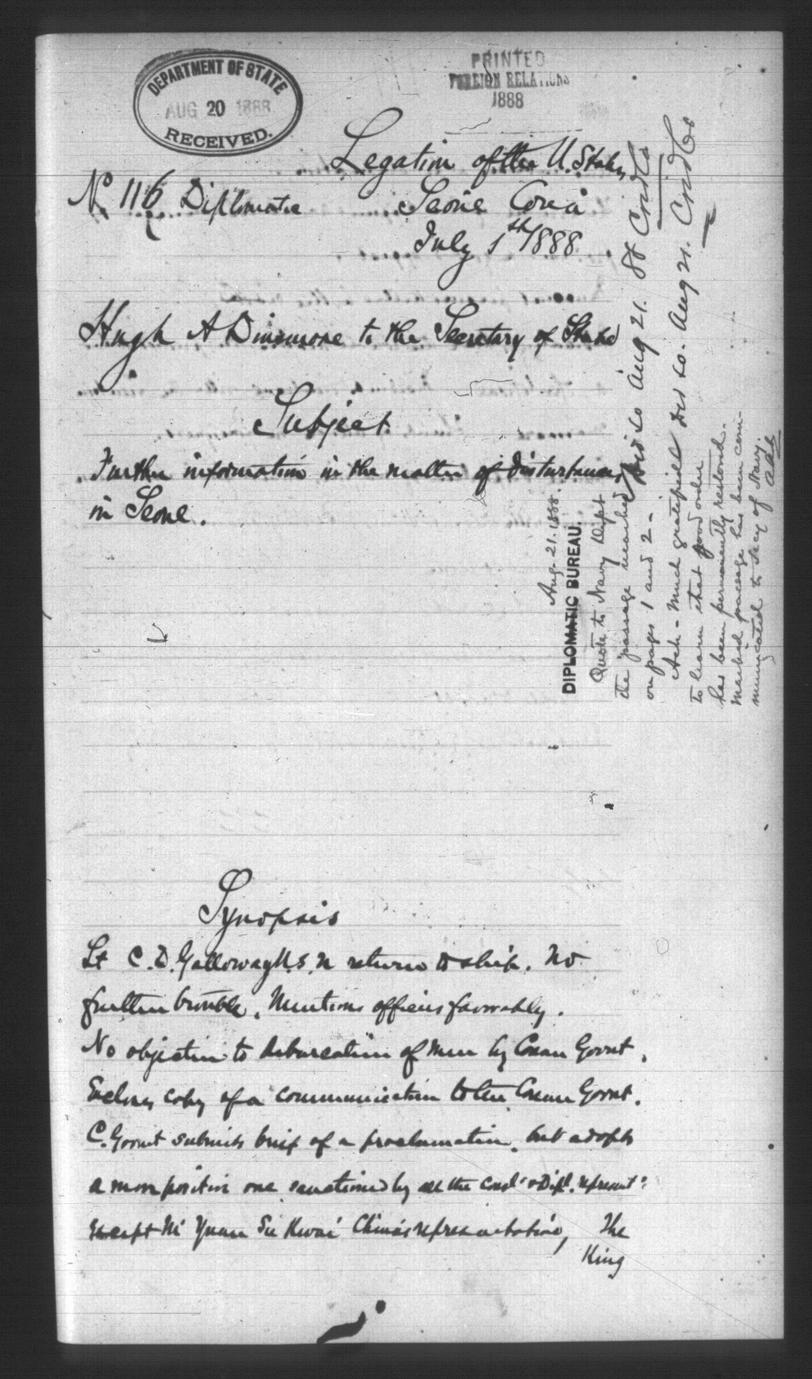 DEPARTMENT OF STATE
AUG 20 1888
RECEIVED.
PRINTED
FOREIGN RELATIONS
1888
Legation of the U. States
No. 116 Diplomatic
Seoul Corea
July 1st 1888
Hugh A Dinsmore to the Secretary of State
Subject
Further information in the matter of disturbances
in Seoul.
Synopsis
Lt C. D. Galloway U.S.N returns to ship. No
further trouble. Mentions officers favorably.
No objection to debarcation of men by Corean Govmt.
Encloses copy of a communication to the Corean Govmt.
C. Govmt submits brief of a proclamation, but adopts
a more positive one sanctioned by all the Consl & Dipl. represent
except Mr Yuan Sie Kwai China's representative, The
King
Aug. 21. 1888.
DIPLOMATIC BUREAU.
Quote to Navy Dept
the passage marked
on pages 1 and 2 -
Ack - Much gratified
to learn that good order
has been permanently restored.
Marked passage has been com-
municated to Secy of Navy.
Aug 21.
Aug 21.